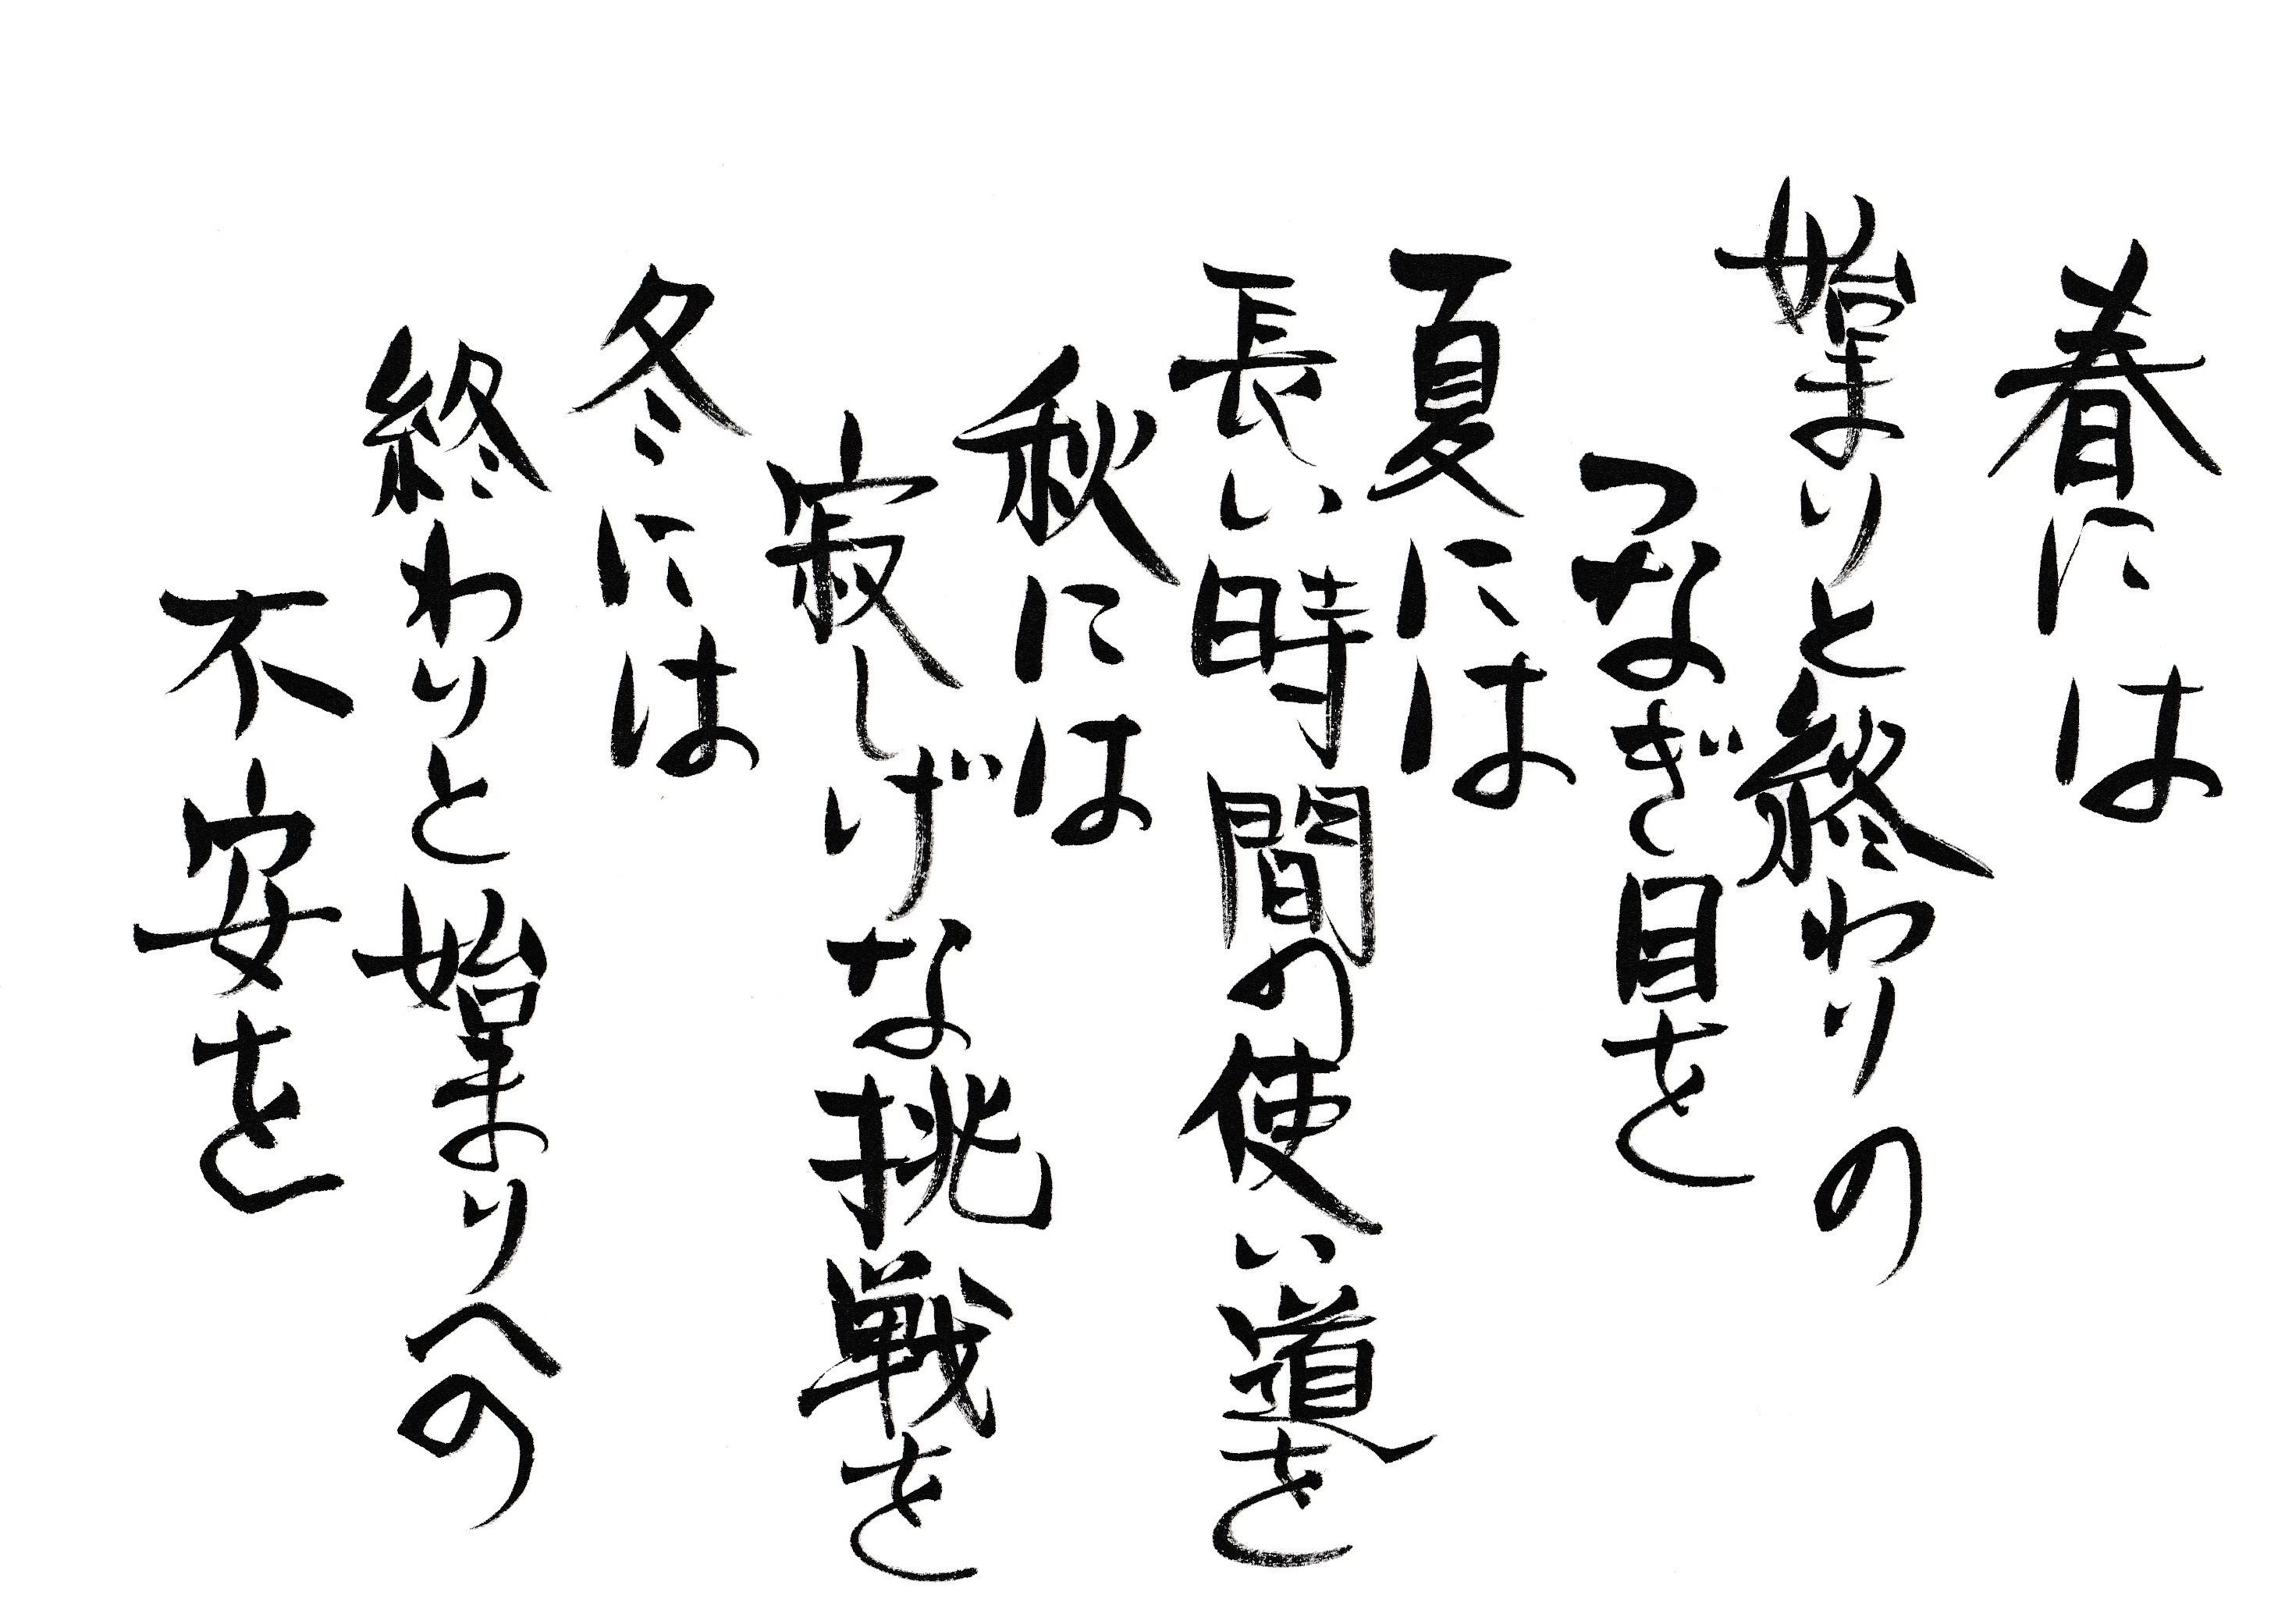 春には
始まりと終わりの
つなぎ目を
夏には
長い時間の使い道を
秋には
寂しげな挑戦を
冬には
終わりと始まりへの
不安を